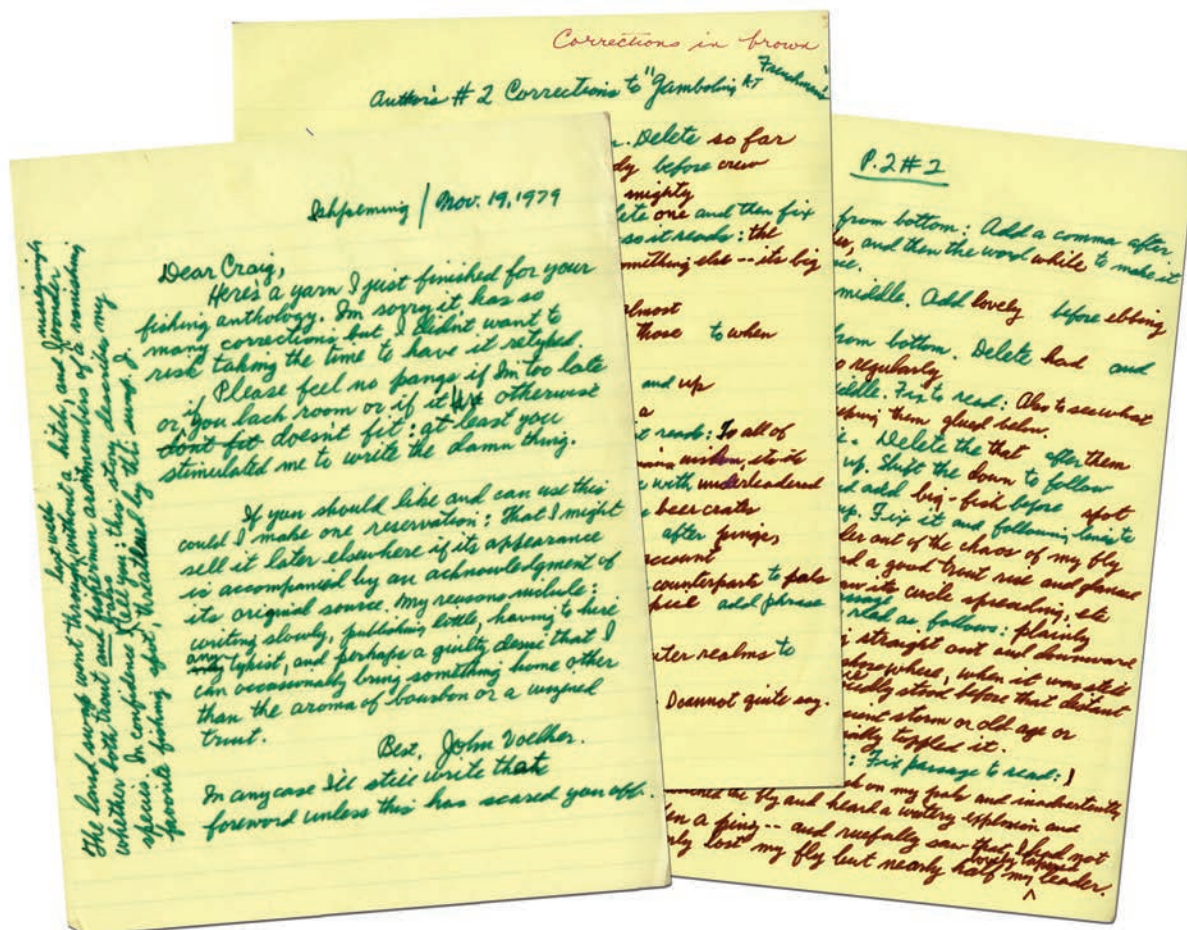 Ishpeming / Nov. 19, 1979
Dear Craig,
Here's a yarn I just finished for your
fishing anthology. I'm sorry it has so
many corrections but I didn't want to
risk taking the time to have it retyped.
Please feel no pangs if I'm too late
or if you lack room or if it otherwise
don't fit doesn't fit: at least you
stimulated me to write the damn thing.
If you should like and can use this
could I make one reservation: That I might
sell it later elsewhere if its appearance
is accompanied by an acknowledgment of
its original source. My reasons include:
writing slowly, publishing little, having to hire
any typist, and perhaps a guilty desire that I
can occasionally bring something home other
than the aroma of bourbon or a wizened
trout.
Best, John Voelker.
In any case I'll still write that
foreword unless this has scared you off.
The land swap went through last week without a hitch, and I wonder
whether both trout and fishermen aren't members of a vanishing
species. In confidence I tell you: this story describes my
favorite fishing spot, threatened by this swap. J.
Corrections in brown
Author's # 2 Corrections to "Gamboling at Frenchman's"
. Delete so far
before crew
mighty
one and then fix
so it reads: the
something else -- its big
almost
those to when
and up
a
it reads: To all of
wisdom, its
with underleadered
beer crates
after pings,
account
counterparts to pals
add phrase
outer realms to
cannot quite say.
P. 2 # 2
from bottom: Add a comma after
, and then the word while to make it
middle. Add lovely before ebbing
from bottom. Delete had and
so regularly
middle. Fix to read: Also to see what
keeping them glued below.
. Delete the that after them
up. Shift the down to follow
and add big-fish before spot
up. Fix it and following lines to
out of the chaos of my fly
and a good trout rise and glance
saw its circle spreading, etc
passage
read as follows: plainly
straight out and downward
shore where, when it was still
stood before that distant
ancient storm or old age or
finally toppled it.
: Fix passage to read: I
on my pals and inadvertently
the fly and heard a watery explosion and
a ping -- and ruefully saw that I had not
only lost my fly but nearly half my lovely tapered leader.